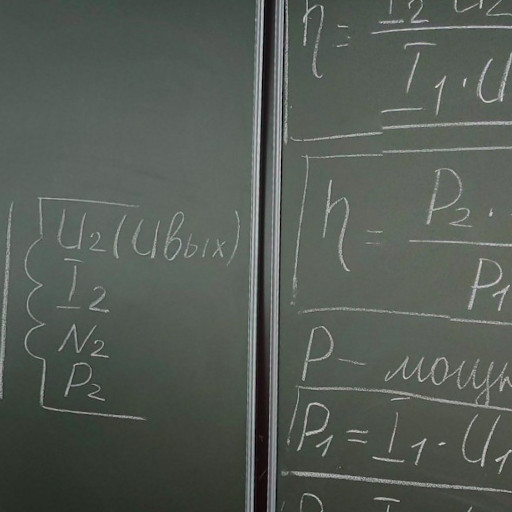 U₂(Uвых)
I₂
N₂
P₂
η = I₂ U₂ / I₁·U
η = P₂ · / P₁
P – мощн
P₁ = I₁·U₁